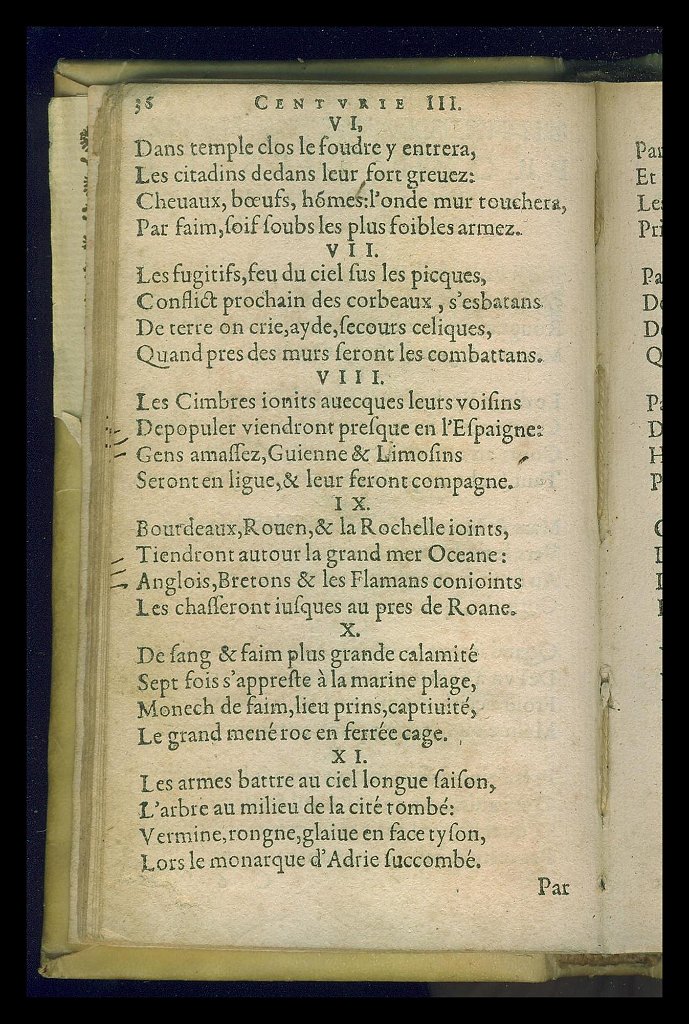 36 CENTVRIE III.
VI,
Dans temple clos le foudre y entrera,
Les citadins dedans leur fort greuez:
Cheuaux, bœufs, hõmes:l'onde mur touchera,
Par faim,ſoif ſoubs les plus foibles armez.
VII.
Les fugitifs,feu du ciel ſus les picques,
Conflict prochain des corbeaux, s'esbatans
De terre on crie,ayde,ſecours celiques,
Quand pres des murs ſeront les combattans.
VIII.
Les Cimbres ionits auecques leurs voiſins
Depopuler viendront preſque en l'Eſpaigne:
Gens amaſſez,Guienne & Limoſins
Seront en ligue,& leur feront compagne.
IX.
Bourdeaux,Rouen,& la Rochelle ioints,
Tiendront autour la grand mer Oceane:
Anglois,Bretons & les Flamans conioints
Les chaſſeront iuſques au pres de Roane.
X.
De ſang & faim plus grande calamité
Sept fois s'appreſte à la marine plage,
Monech de faim,lieu prins,captiuité,
Le grand mené roc en ferrée cage.
XI.
Les armes battre au ciel longue ſaiſon,
L'arbre au milieu de la cité tombé:
Vermine,rongne,glaiue en face tyſon,
Lors le monarque d'Adrie ſuccombé.
Par
Par
Et
Les
Pri
Pa
De
De
Q
Pa
D
H
P